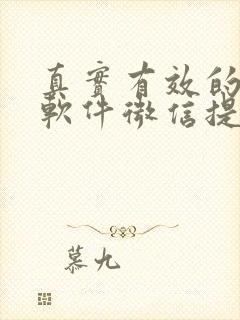 真實有效的
軟件微信提
慕九